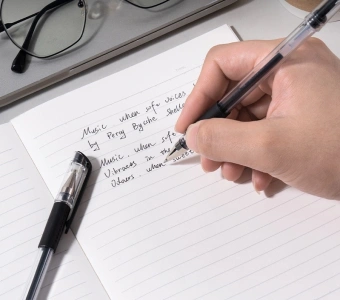 Music when soft voices
by Percy Bysshe Shelle
Music, when soft
Vibrates in the
Odours, when sweet